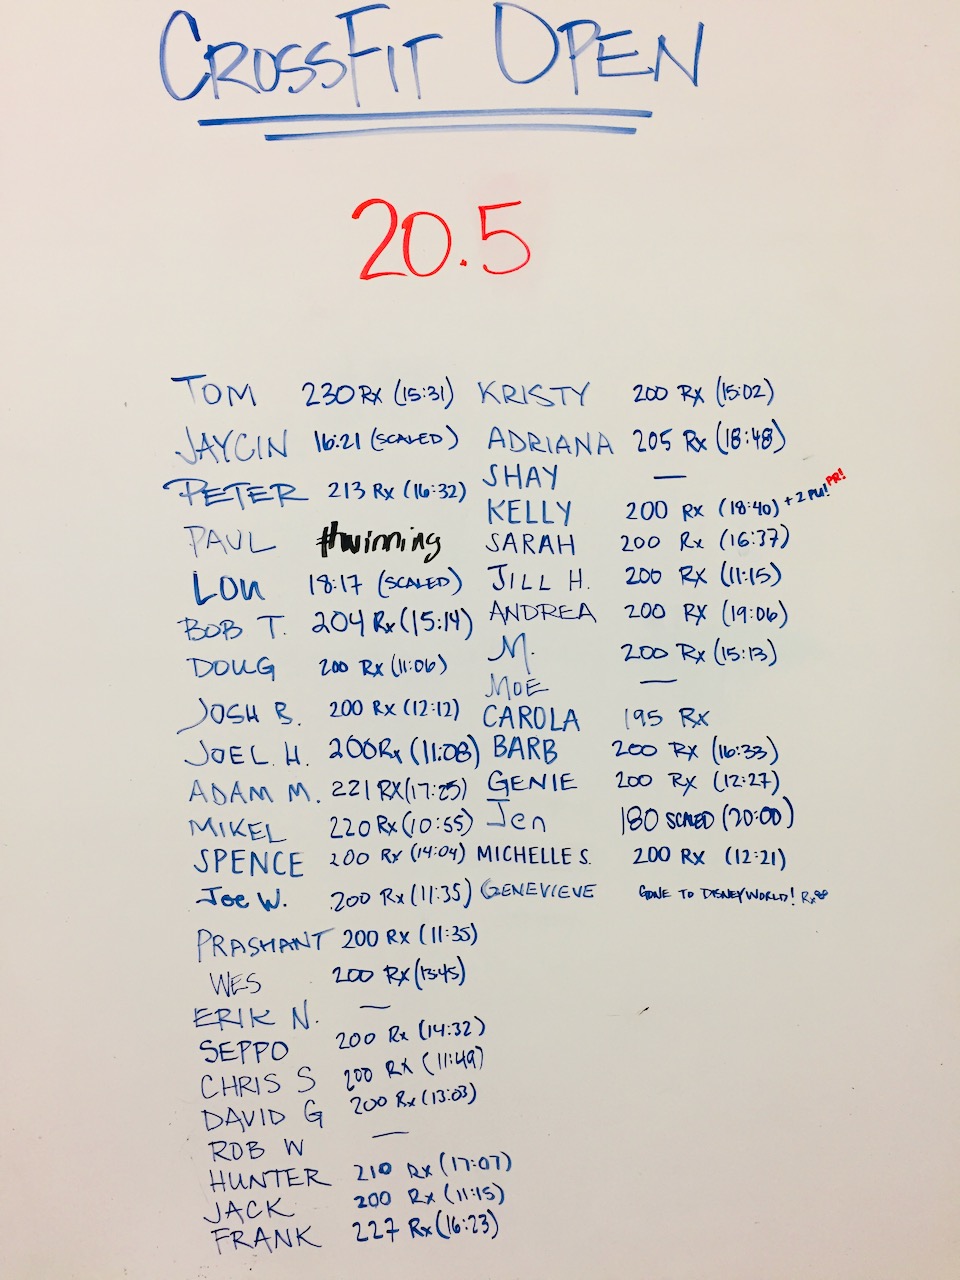 CROSSFIT OPEN
20.5
TOM 230 RX (15:31)
JAYCIN 16:21 (SCALED)
PETER 213 RX (16:32)
PAUL #winning
Lou 18:17 (SCALED)
BOB T. 204 Rx (15:14)
DOUG 200 RX (11:06)
JOSH B. 200 Rx (12:12)
JOEL H. 200 Rx (11:08)
ADAM M. 221 RX (17:25)
MIKEL 220 RX (10:55)
SPENCE 200 Rx (14:04)
Joe W. 200 Rx (11:35)
PRASHANT 200 RX (11:35)
WES 200 RX (13:45)
ERIK N. —
SEPPO 200 RX (14:32)
CHRIS S 200 RX (11:49)
DAVID G 200 Rx (13:03)
ROB W —
HUNTER 210 Rx (17:07)
JACK 200 Rx (11:15)
FRANK 227 Rx (16:23)
KRISTY 200 RX (15:02)
ADRIANA 205 Rx (18:48)
SHAY —
KELLY 200 RX (18:40) + 2 MU! PR!
SARAH 200 Rx (16:37)
JILL H. 200 RX (11:15)
ANDREA 200 RX (19:06)
M. 200 Rx (15:13)
MOE —
CAROLA 195 RX
BARB 200 RX (16:33)
GENIE 200 RX (12:27)
Jen 180 SCALED (20:00)
MICHELLE S. 200 RX (12:21)
GENEVIEVE GONE TO DISNEYWORLD! Rx